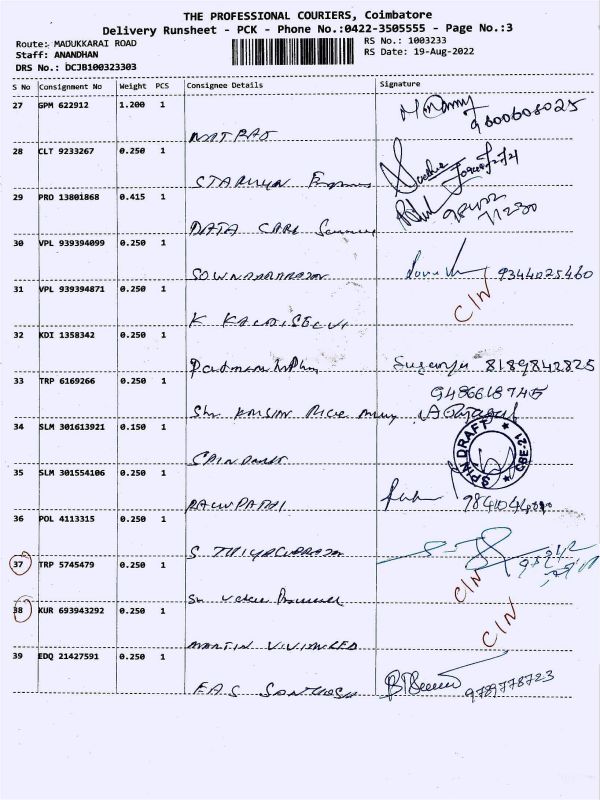 THE PROFESSIONAL COURIERS, Coimbatore
Delivery Runsheet - PCK - Phone No.:0422-3505555 - Page No.:3
Route: MADUKKARAI ROAD
Staff: ANANDHAN
DRS No.: DCJB100323303
RS No.: 1003233
RS Date: 19-Aug-2022
S No Consignment No Weight PCS Consignee Details Signature
27 GPM 622912 1.200 1
9600608025
28 CLT 9233267 0.250 1
29 PRO 13801868 0.415 1
DATA CARE
30 VPL 939394099 0.250 1
SOWNDARARAJAN 9344025460
31 VPL 939394871 0.250 1 C/N
K KALAISELVI
32 KDI 1358342 0.250 1
Suganya 8189842825
33 TRP 6169266 0.250 1
9486618745
34 SLM 301613921 0.150 1
SPIN DRAFT CBE-21
35 SLM 301554106 0.250 1
RAGUPATHI
36 POL 4113315 0.250 1
S THIYAGARAJAN
37 TRP 5745479 0.250 1 C/N
38 KUR 693943292 0.250 1 C/N
MARTIN
39 EDQ 21427591 0.250 1
EAS SANTHOSH 9789778723